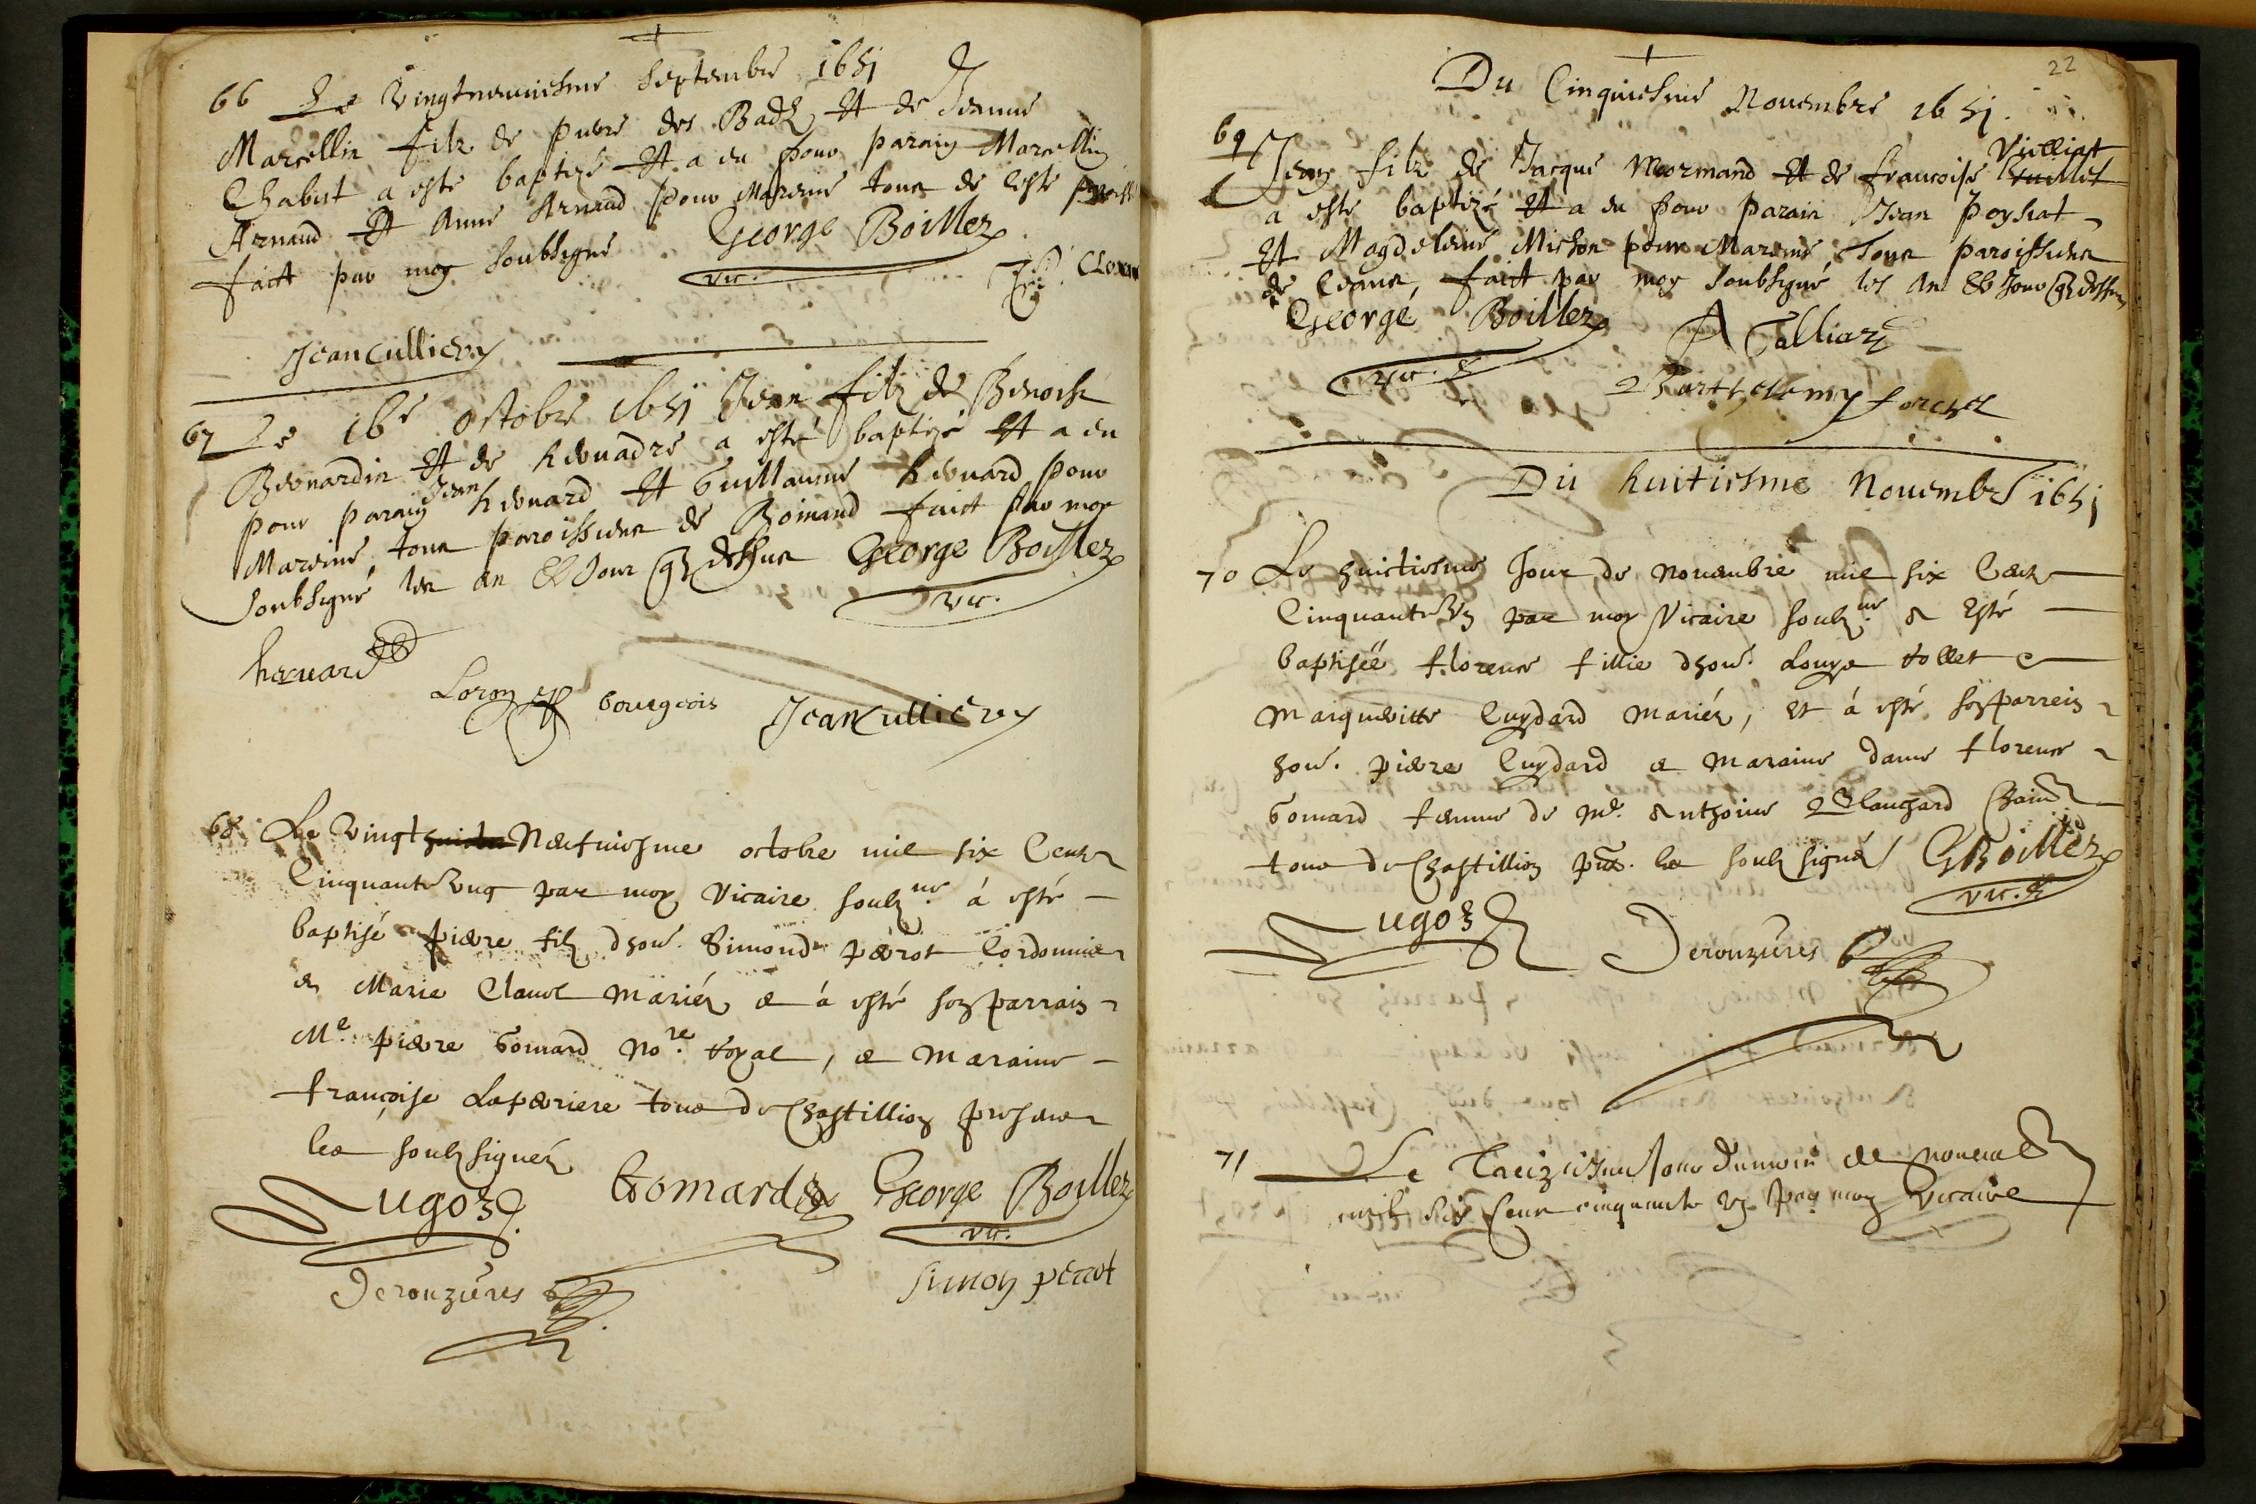 66 Le vingtneuuiesme septembre 1651
Marcellin filz de pierre des Badz Et de Jeanne
Chabert a esté baptizé Et a eu pour parain Marcellin
Arnaud Et Anne Arnaud pour Mareine tous de ceste
faict par moy soubsigné George Boillez
vic.
Jean Cullierz
67 Le 16e octobre 1651 Jean filz de Benoist
Bernardin Et de heruadre a esté baptizé Et a eu
pour parain Jean heruard Et Guillaume heruard pour
Mareine tous paroissiens de Boinand faict par moy
soubsigné les an & jour q dessus George Boillez
vic.
heruard
bourgeois
Jean Cullierz
68 Le vingt Neufuiesme octobre mil six Centz
Cinquante vng par moy vicaire soulz.ne à esté
baptisé pierre filz d'hon. Simond perrot Cordonnier
& Marie Claude mariés & à esté son parrain
Me. pierre Gomard No.re royal, & maraine
françoise Laperriere tous de Chastillion presens
les soulz signés
Lugoz
Gomard
George Boillez
vic.
Derouzieres
Simon perrot
22
Du Cinquiesme Nouembre 1651.
69 Jean filz de Jacque Mormand Et de francoise Vielliat
a esté baptizé Et a eu pour parain Jean poysat
Et Magdeleine Michon pour Mareine Tous paroissiens
de ceans, faict par moy soubsigné les an & jour q dessus
George Boillez
vic.
A Talliard
Barthelemy forest
Du huitiesme Nouembre 1651
70 Le huictiesme Jour de nouembre mil six Centz
Cinquante Vn par moy Vicaire soulz.ne a Esté
baptisée florence fillie d'hon. Louys tollet &
Margueritte Cuydard mariés, Et à esté son parrein
hon. pierre Cuydard & maraine dame florence
Gomard femme de Me. Anthoine Blanchard
tous de Chastillion les soulz signés GBoillez
vic.
Lugoz
Derouzieres
71 Le Treiziesme Jour du mois de nouembre
mil six Cens cinquante vn par moy vicaire